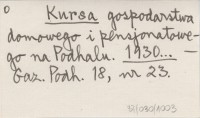 Kursa gospodarstwa
domowego i pensjonatowe-
go na Podhalu. 1930... —
Gaz. Podh. 18, nr 23.